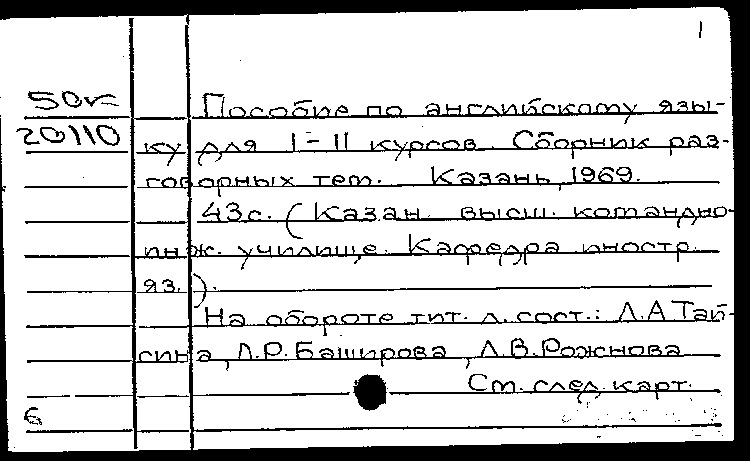 1
50к Пособие по английскому язы-
20110 ку для I-II курсов. Сборник раз-
говорных тем. Казань, 1969.
43с. (Казан. высш. командно-
инж. училище. Кафедра иностр.
яз.).
На обороте тит. л. сост.: Л.А Тай-
сина, Л.Р. Баширова, Л.В. Рожнова
См. след. карт.
6